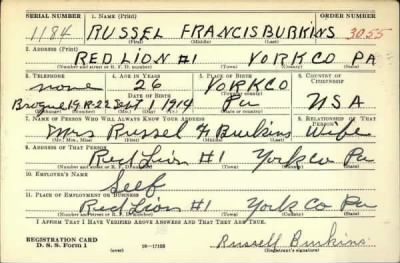 SERIAL NUMBER 1. NAME (Print) ORDER NUMBER
1184 RUSSEL FRANCIS BURKINS 3055
(First) (Middle) (Last)
2. ADDRESS (Print)
RED LION #1 YORK CO PA
(Number and street or R. F. D. number) (Town) (County) (State)
3. TELEPHONE 4. AGE IN YEARS 5. PLACE OF BIRTH 6. COUNTRY OF CITIZENSHIP
none 26 YORK CO
DATE OF BIRTH (Town or county)
Brogue 19R22 Sept 1 1914 Pa USA
(Exchange) (Number) (Mo.) (Day) (Yr.) (State or country)
7. NAME OF PERSON WHO WILL ALWAYS KNOW YOUR ADDRESS 8. RELATIONSHIP OF THAT PERSON
Mrs Russel F Burkins Wife
(Mr., Mrs., Miss) (First) (Middle) (Last)
9. ADDRESS OF THAT PERSON
Red Lion #1 York Co Pa
(Number and street or R. F. D. number) (Town) (County) (State)
10. EMPLOYER'S NAME
Self
11. PLACE OF EMPLOYMENT OR BUSINESS
Red Lion #1 York Co Pa
(Number and street or R. F. D. number) (Town) (County) (State)
I AFFIRM THAT I HAVE VERIFIED ABOVE ANSWERS AND THAT THEY ARE TRUE.
REGISTRATION CARD
D. S. S. Form 1 (over) 16—17105 Russell Burkins
(Registrant's signature)